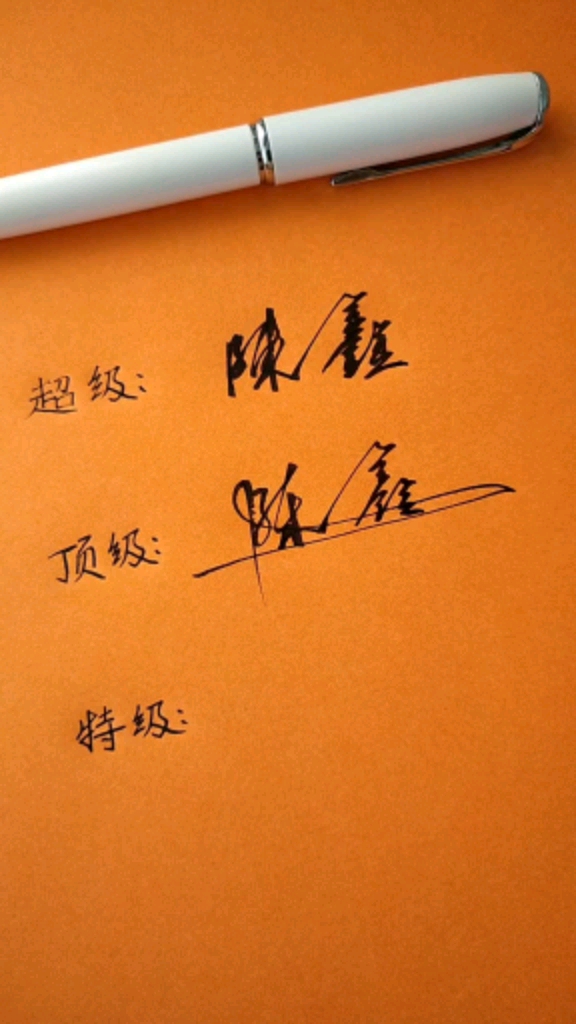 超级: 陳鑫
顶级: 陈鑫
特级: